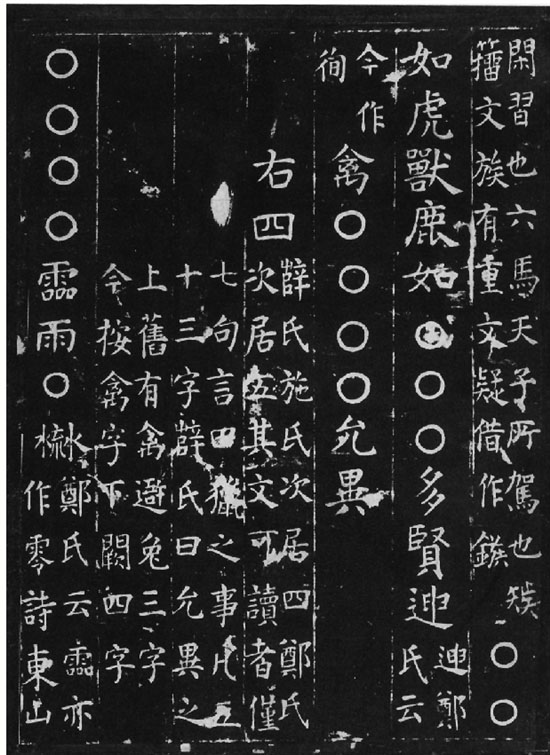 閑習也六馬天子所駕也
籀文族有重文疑借作鏃
○○
如虎獸鹿如○○○多賢迧
迧鄭
氏云
今作
徇
禽○○○○允異
右四
薛氏施氏次居四鄭氏
次居五其文可讀者僅
七句言田獵之事凡五
十三字薛氏曰允異之
上舊有禽兔三字
今按禽字下闕四字
○○○○霝雨○
鄭氏云霝亦
作零詩東山